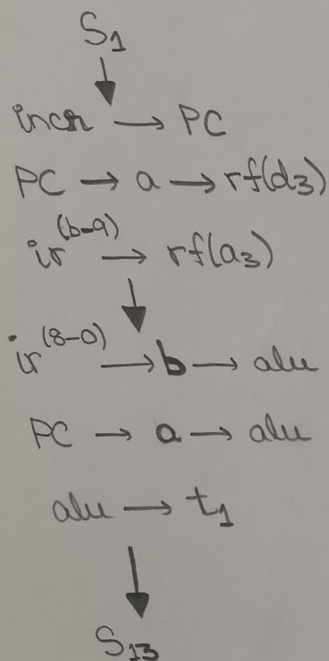 S₁
incr → PC
PC → a → rf(d₃)
ir⁽ᵇ⁻⁹⁾ → rf(a₃)
ir⁽⁸⁻⁰⁾ → b → alu
PC → a → alu
alu → t₁
S₁₃